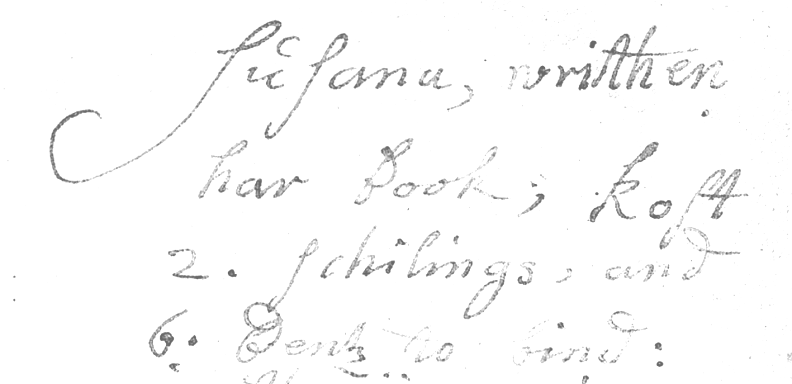 Susana, writthen
har Book; kost
2. schilings, and
6. Pents to bind: